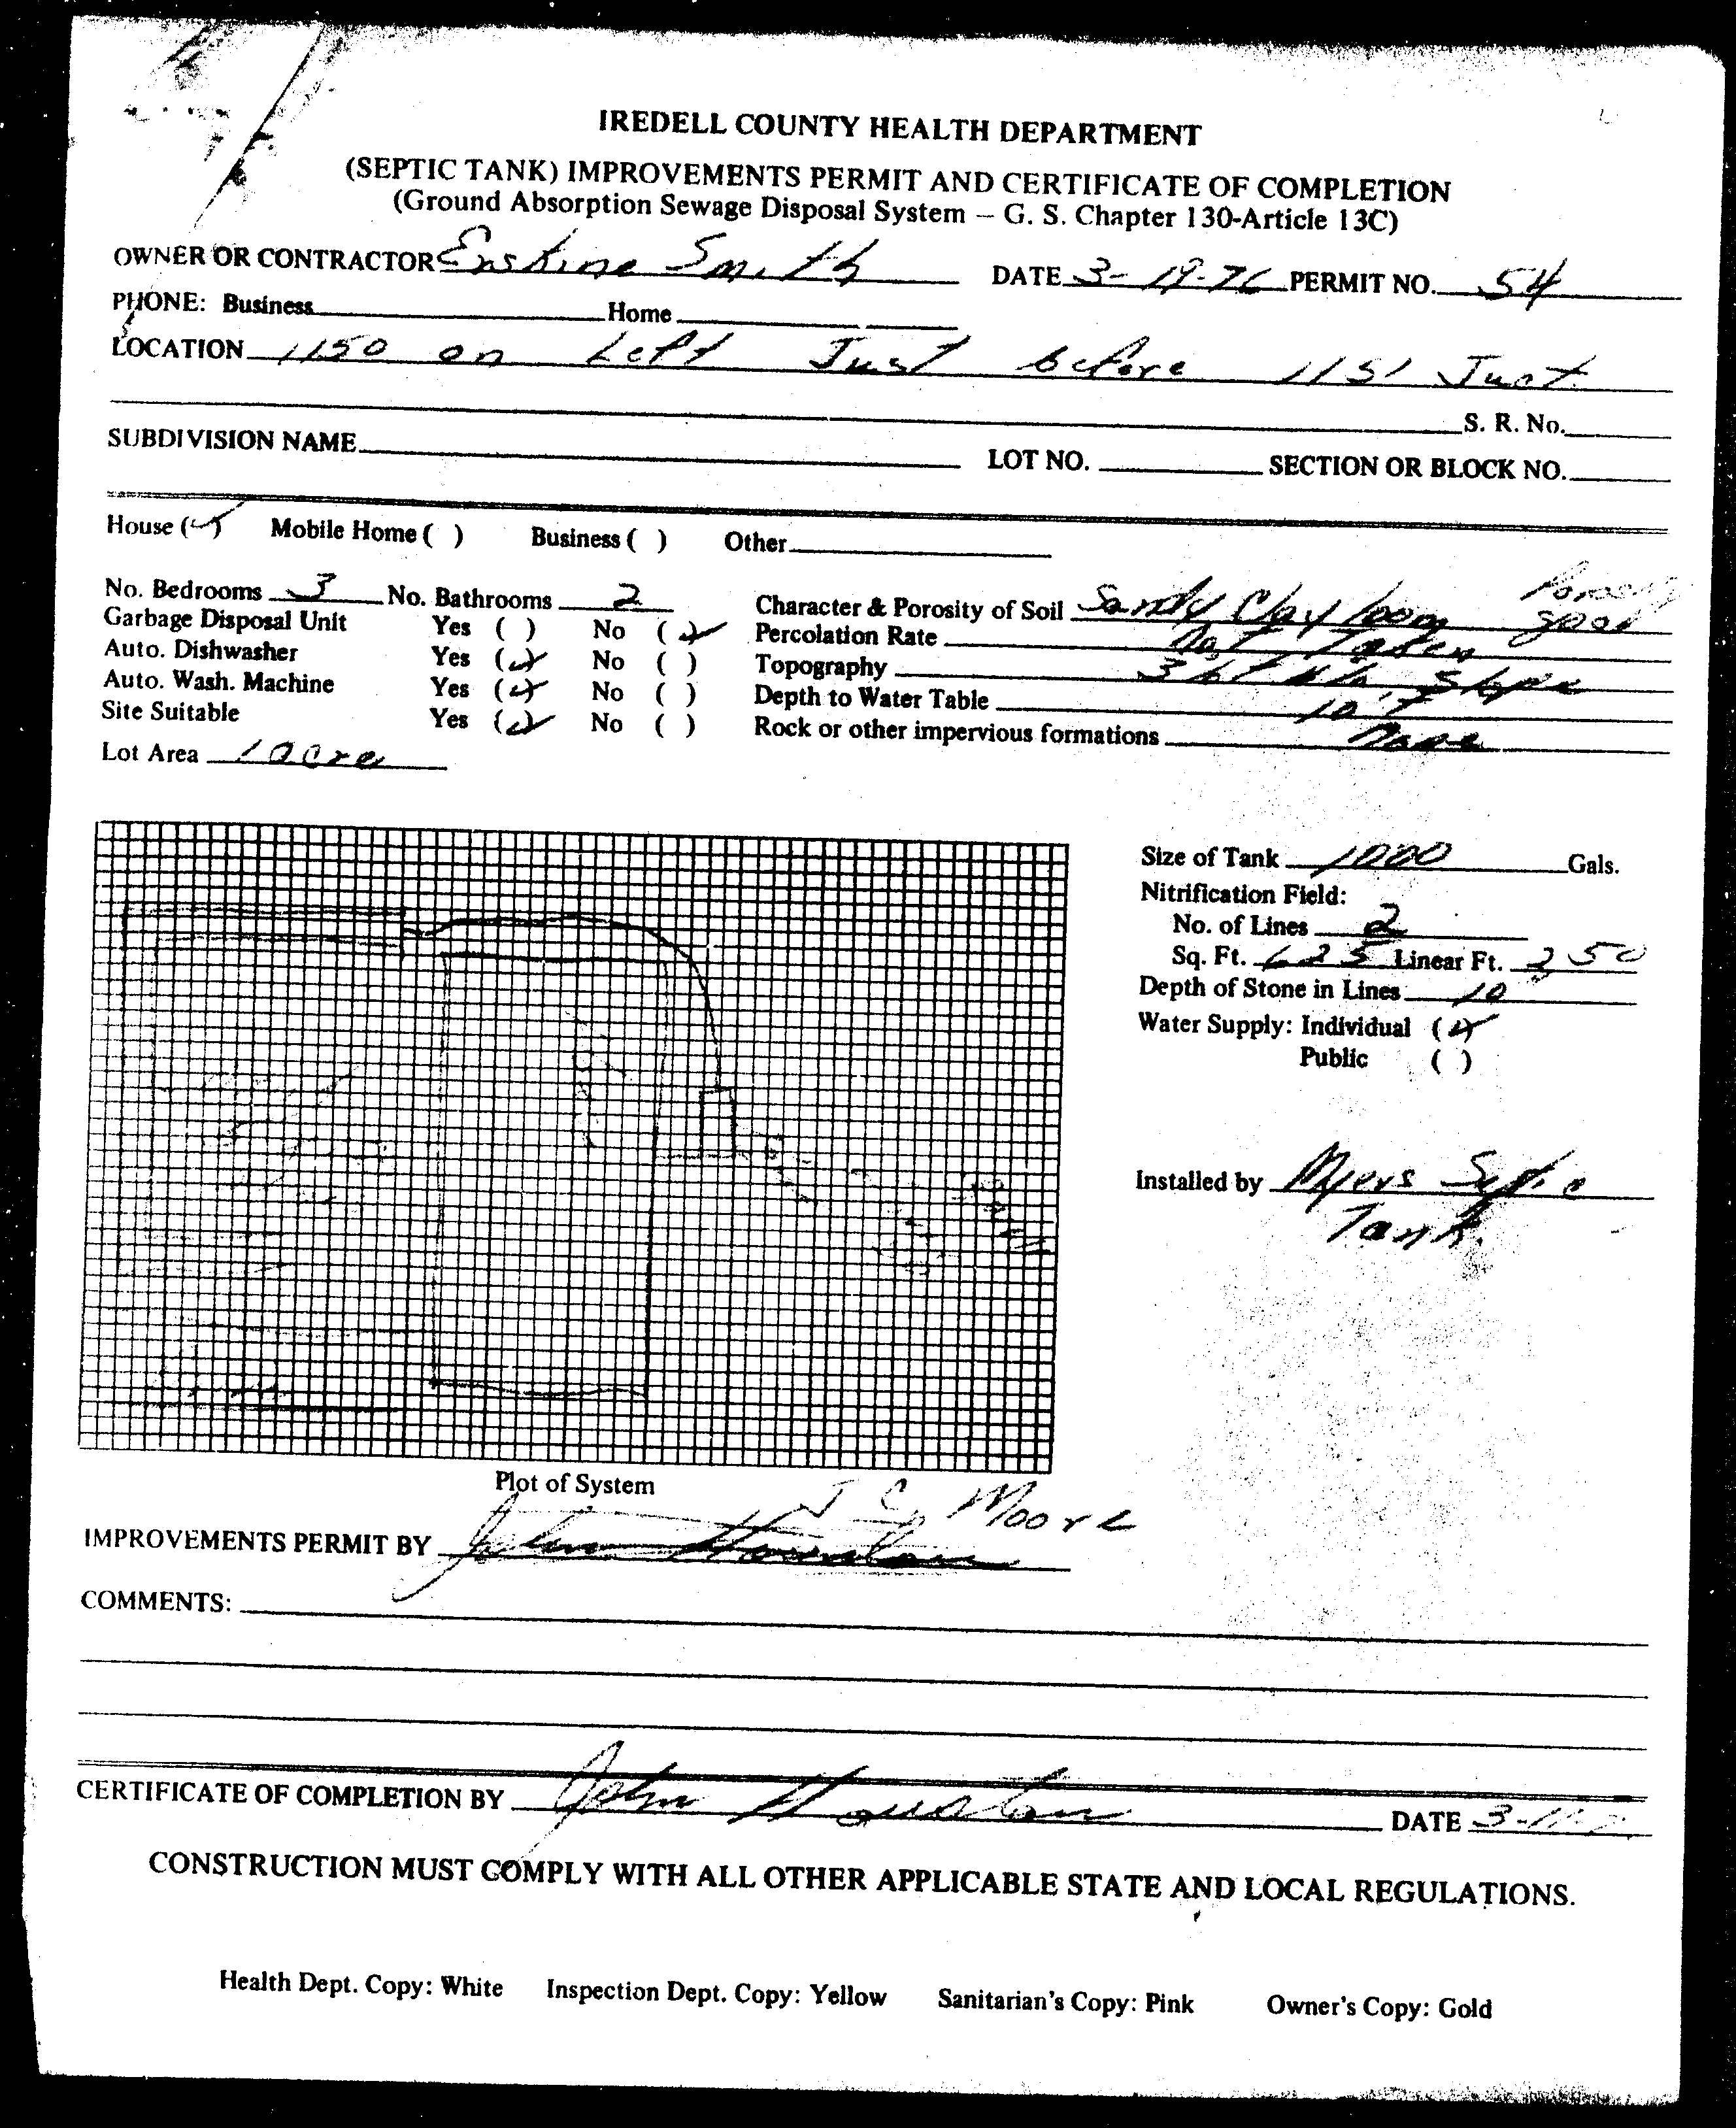 IREDELL COUNTY HEALTH DEPARTMENT
(SEPTIC TANK) IMPROVEMENTS PERMIT AND CERTIFICATE OF COMPLETION
(Ground Absorption Sewage Disposal System — G. S. Chapter 130-Article 13C)
OWNER OR CONTRACTOR Erskine Smith DATE 3-19-76 PERMIT NO. 54
PHONE: Business Home
LOCATION 1150 on Left Just before 1151 Just
S. R. No.
SUBDIVISION NAME LOT NO. SECTION OR BLOCK NO.
House (✓) Mobile Home ( ) Business ( ) Other
No. Bedrooms 3 No. Bathrooms 2 Character & Porosity of Soil Sandy Clay loom good
Garbage Disposal Unit Yes ( ) No (✓) Percolation Rate Not Taken
Auto. Dishwasher Yes (✓) No ( ) Topography Slope
Auto. Wash. Machine Yes (✓) No ( ) Depth to Water Table 10'
Site Suitable Yes (✓) No ( ) Rock or other impervious formations None
Lot Area 1 acre
Size of Tank 1000 Gals.
Nitrification Field:
No. of Lines 2
Sq. Ft. 625 Linear Ft. 250
Depth of Stone in Lines 10
Water Supply: Individual (✓)
Public ( )
Installed by Myers Septic
Tank.
Plot of System
J C Moore
IMPROVEMENTS PERMIT BY John Houston
COMMENTS:
CERTIFICATE OF COMPLETION BY John Houston DATE
CONSTRUCTION MUST COMPLY WITH ALL OTHER APPLICABLE STATE AND LOCAL REGULATIONS.
Health Dept. Copy: White Inspection Dept. Copy: Yellow Sanitarian's Copy: Pink Owner's Copy: Gold